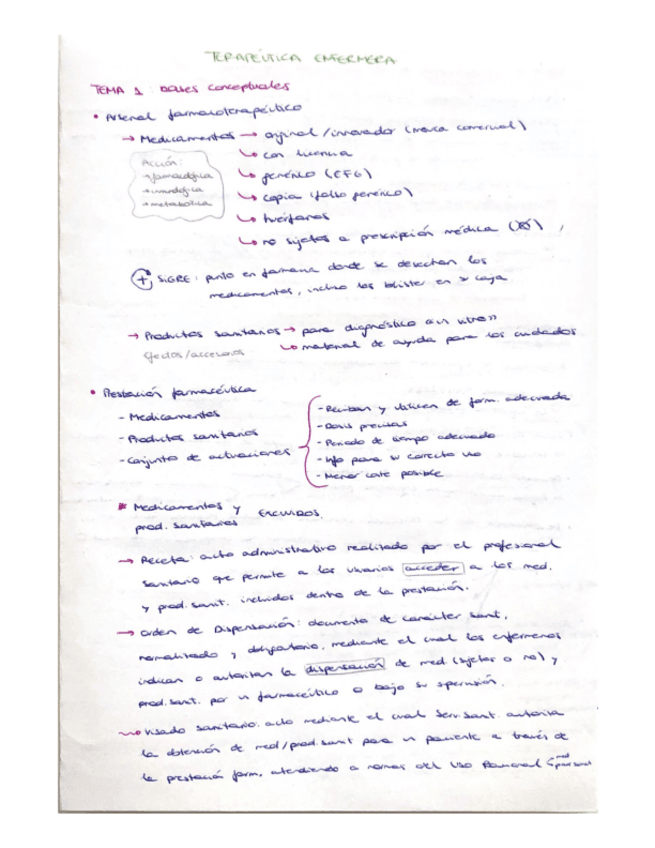 TERAPÉUTICA ENFERMERA
TEMA 1: Bases conceptuales
• Arsenal farmacoterapéutico
→ Medicamentos → original/innovador (marca comercial)
Acción:
→ farmacológica
→ inmunológica
→ metabólica
↳ con licencia
↳ genérico (EFG)
↳ copia (falso genérico)
↳ huérfanos
↳ no sujetos a prescripción médica
+ SIGRE: punto en farmacia donde se desechan los
medicamentos, incluso los blister en su caja.
→ Productos sanitarios → para diagnóstico "in vitro"
efectos/accesorios
↳ material de ayuda para los cuidados
• Prestación farmacéutica
- Medicamentos
- Productos sanitarios
- Conjunto de actuaciones
- Reciban y utilicen de form. adecuada
- Dosis precisas
- Periodo de tiempo adecuado
- Info para su correcto uso
- Menor coste posible
* Medicamentos y
prod. sanitarios EXCLUIDOS.
→ Receta: acto administrativo realizado por el profesional
sanitario que permite a los usuarios acceder a los med.
y prod. sanit. incluidos dentro de la prestación.
→ Orden de Dispensación: documento de carácter sanit,
normalizado y obligatorio, mediante el cual los enfermeros
indican o autorizan la dispensación de med (sujetos o no) y
prod. sanit. por un farmacéutico o bajo su supervisión.
→ Visado sanitario: acto mediante el cual Serv. Sanit. autoriza
la obtención de med/prod. sanit para un paciente a través de
la prestación farm, atendiendo a normas del Uso Racional